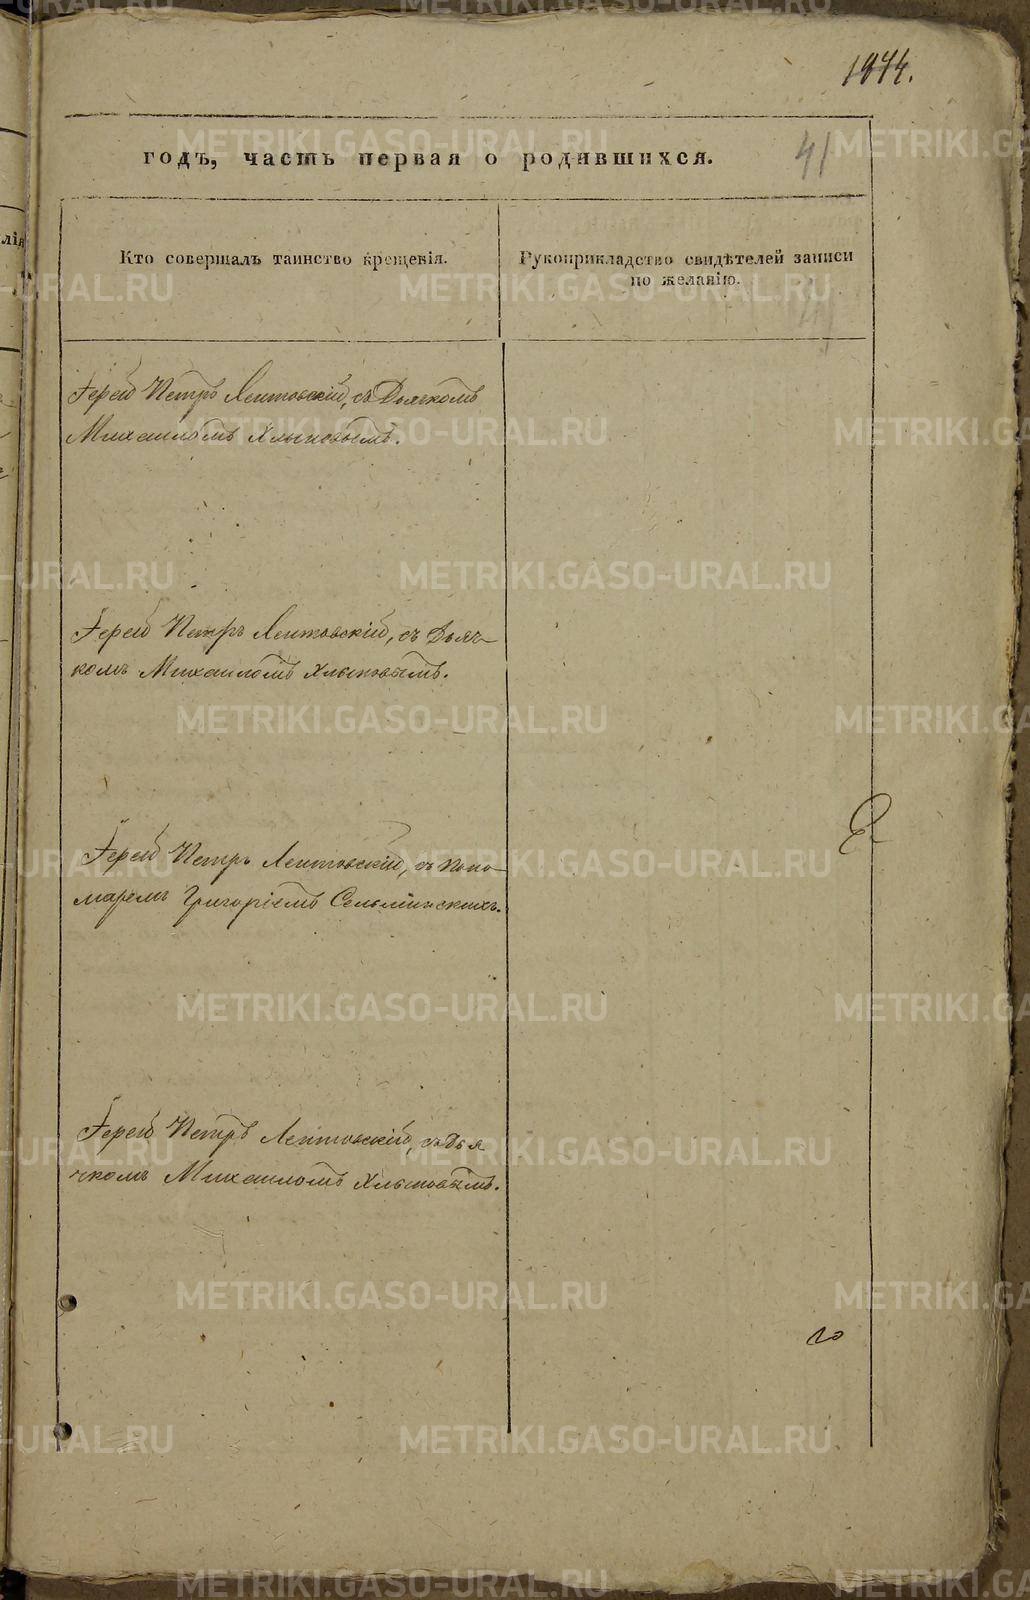 1944.
годъ, часть первая о родившихся.
41
Кто совершалъ таинство крещенія.
Рукоприкладство свидѣтелей записи
по желанію.
Іерей Петръ Лептовскій, съ Дьячкомъ
Михаиломъ Хлыновымъ.
Іерей Петръ Лептовскій, съ Дьяч-
комъ Михаиломъ Хлыновымъ.
Іерей Петръ Лептовскій, съ Поно-
маремъ Григоріемъ Сельминскихъ.
Іерей Петръ Лептовскій, съ Дья
чкомъ Михаиломъ Хлыновымъ.
METRIKI.GASO-URAL.RU